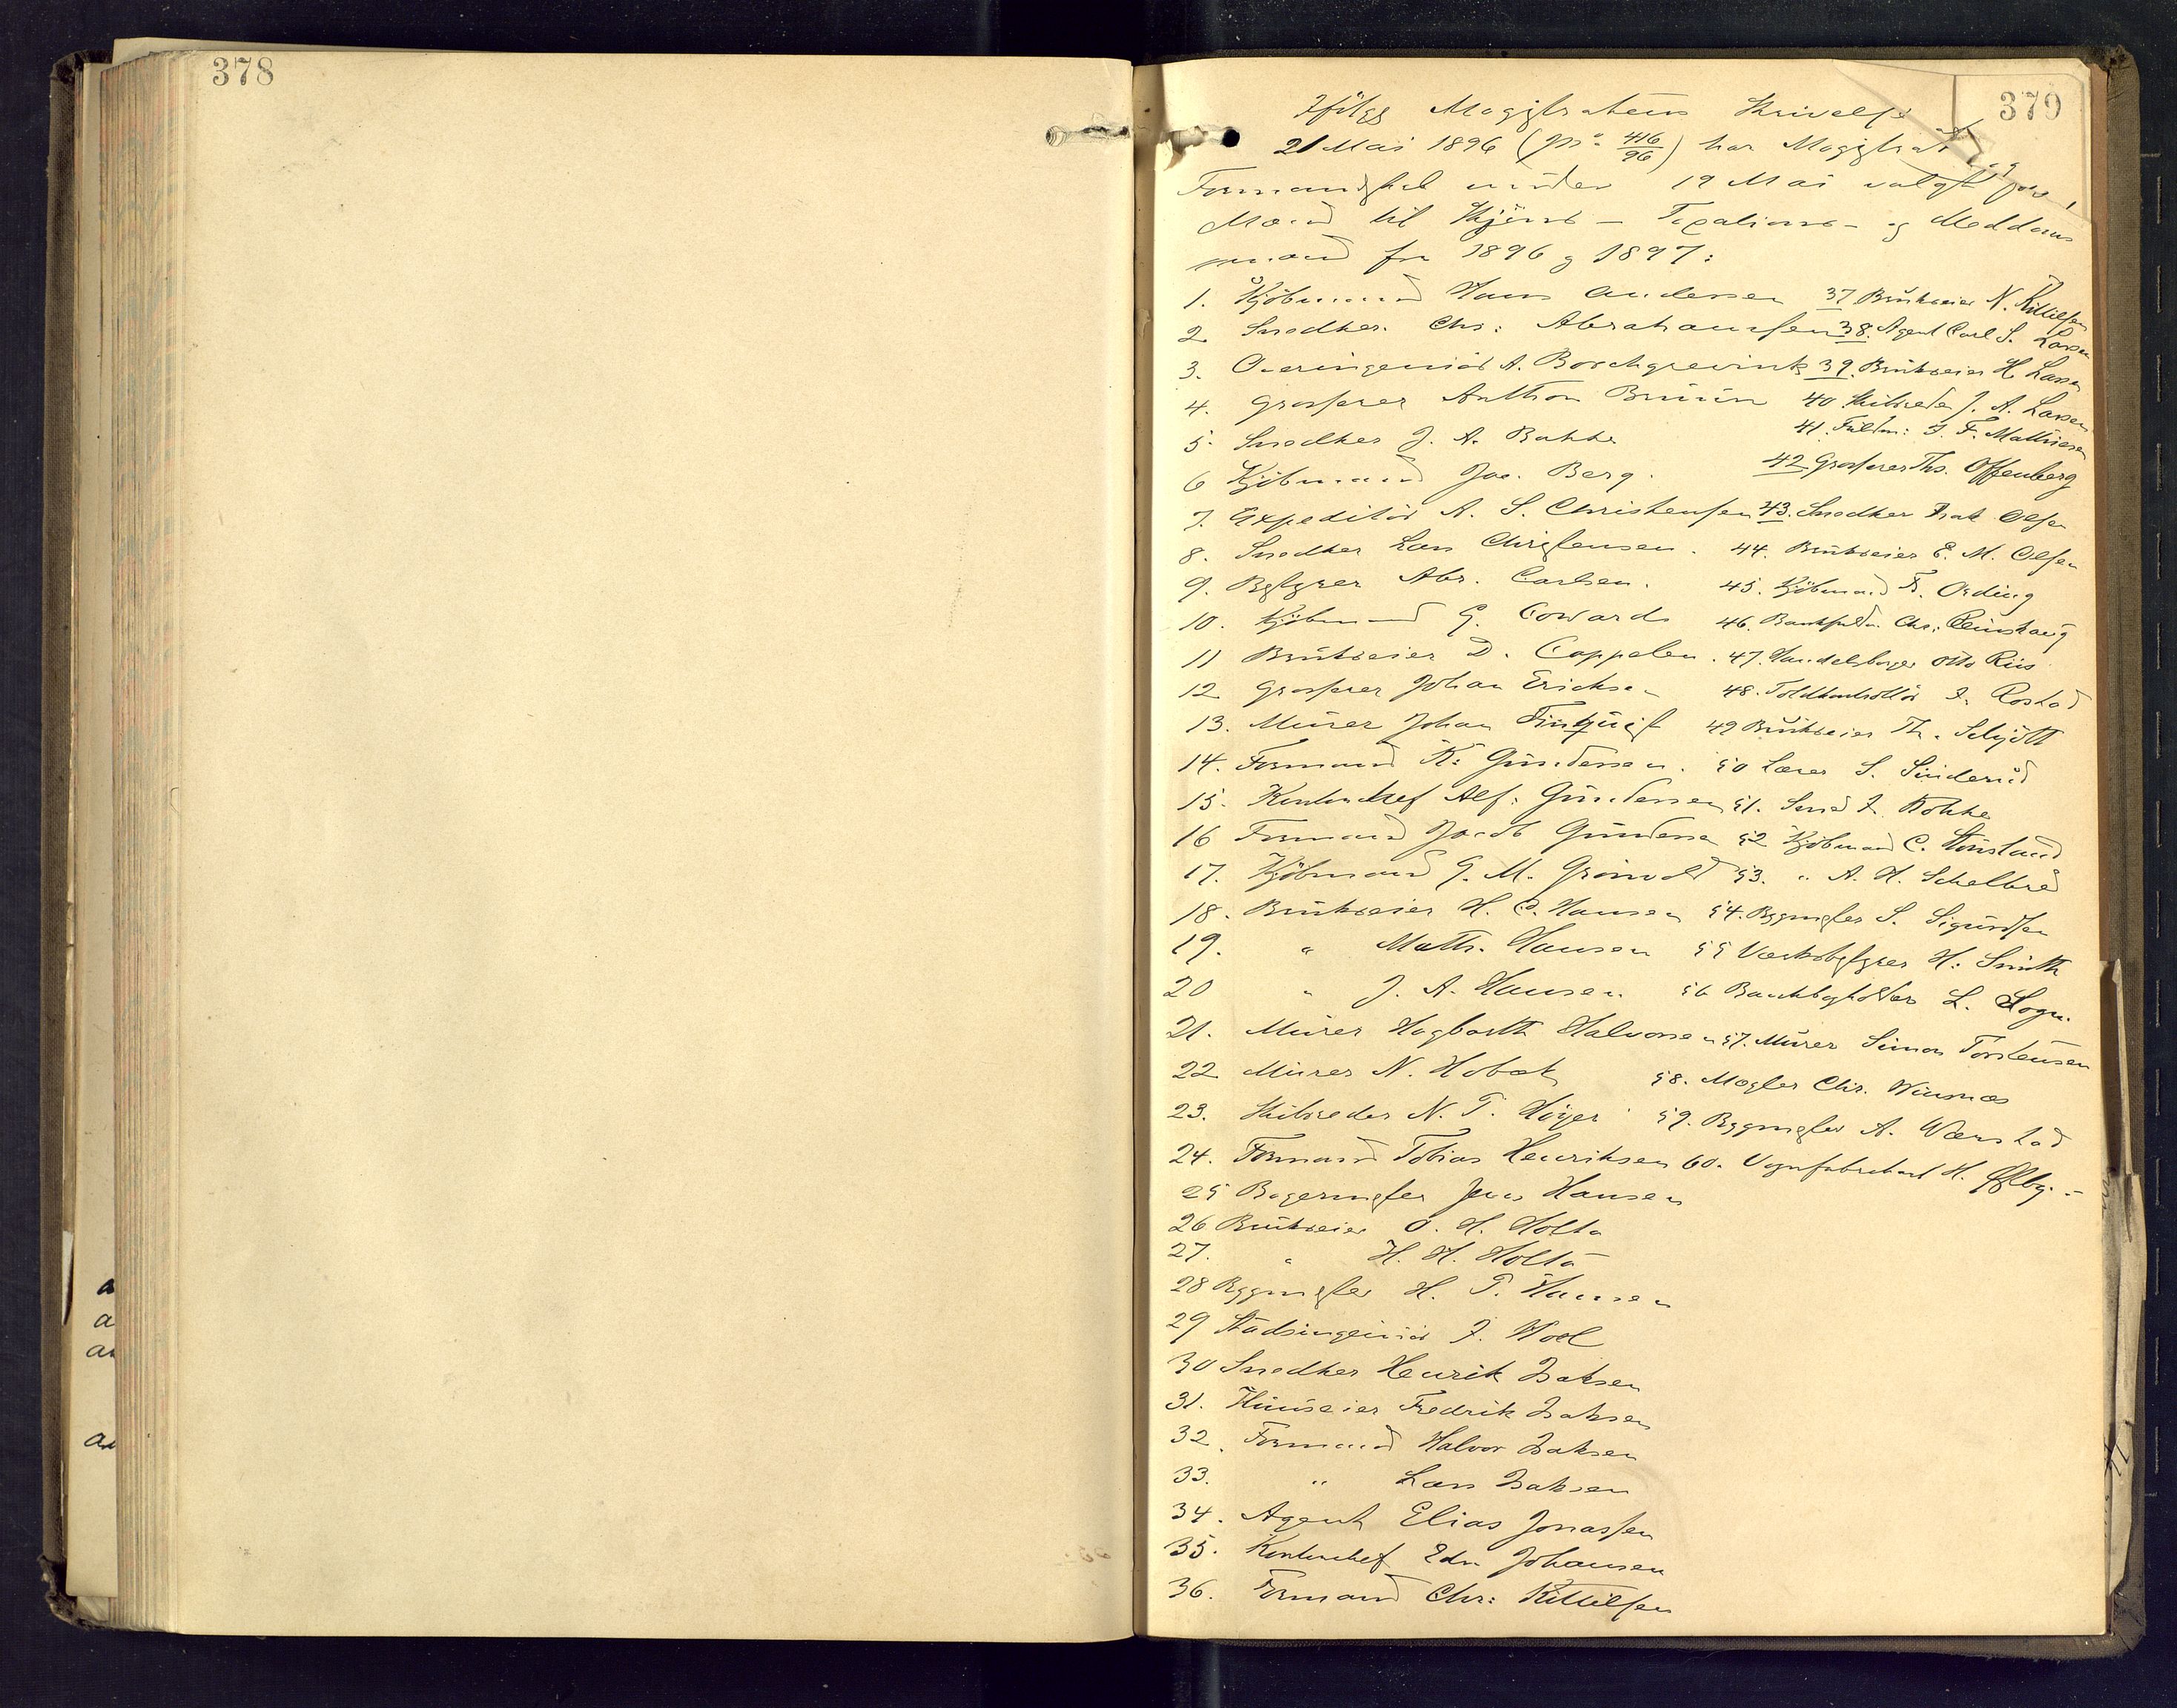 378
379
Ifølge Magistratens Skrivelse
21 Mai 1896 (No 416/96) har Magistrat og
Formandskab under 19 Mai valgt
Mænd til Skjøns- Taxations- og Meddoms
mænd for 1896 og 1897:
1. Kjöbmand Hans Andersen
2. Snedker Chr: Abrahamsen
3. Overingeniör A. Borchgrevink
4. Grosserer Anthon Bruun
5. Snedker J. A. Bakke
6 Kjöbmand Jac. Berg.
7. Expeditör A. S. Christensen
8. Snedker Lars Christensen.
9. Bestyrer Abr. Carlsen.
10. Kjöbmand G. Cowards
11 Brukseier D. Cappelen.
12 Grosserer Johan Ericksen
13. Murer Johan Finquist
14. Formand K: Gundersen.
15. Kontorchef Alf: Gundersen
16 Formand Jacob Gundersen
17. Kjöbmand G. M. Grönvold
18. Brukseier H. C. Hansen
19. " Math. Hansen
20 " J. A. Hansen
21. Murer Hagbarth Halvorsen
22 Murer N. Hobæk
23. Skibsreder N. T. Höyer
24. Formand Tobias Henriksen
25 Bagermester Jens Hansen
26 Brukseier O. H. Holta
27. " H. H. Holta
28 Bygmester H. T. Hansen
29 Stadsingeniör J. Hoel
30 Snedker Henrik Isaksen
31. Huuseier Fredrik Isaksen
32. Formand Halvor Isaksen
33. " Lars Isaksen
34. Agent Elias Jonassen
35. Kontorchef Edv Johansen
36. Formand Chr: Kittilsen
37 Brukseier N. Kittilsen
38. Agent Carl S. Larsen
39. Brukseier H. Larsen
40 Skibsreder J. A. Larsen
41. Fuldm: J. F. Mathiesen
42 Grosserer Ths. Offenberg
43. Snedker Isak Olsen
44. Brukseier E. M. Olsen
45. Kjöbmand Fr. Ording
46. Bankfuldm. Chr: Reinshaug
47. Handelsborger Otto Riis
48. Toldkontrollör J. Rostad
49 Brukseier Th. Schjött
50 Lærer S. Sunderud
51. Smed J. Kokke
52 Kjöbmand C. Stousland
53. " A. H. Schelbred
54. Bygmester S. Sigurdsen
55 Værksbestyrer H: Smith
56 Bankbogholder L. Sogn.
57. Murer Simon Torstensen
58. Mægler Chr. Wiersnæs
59. Bygmester A. Wærstad
60. Vognfabrikant H.